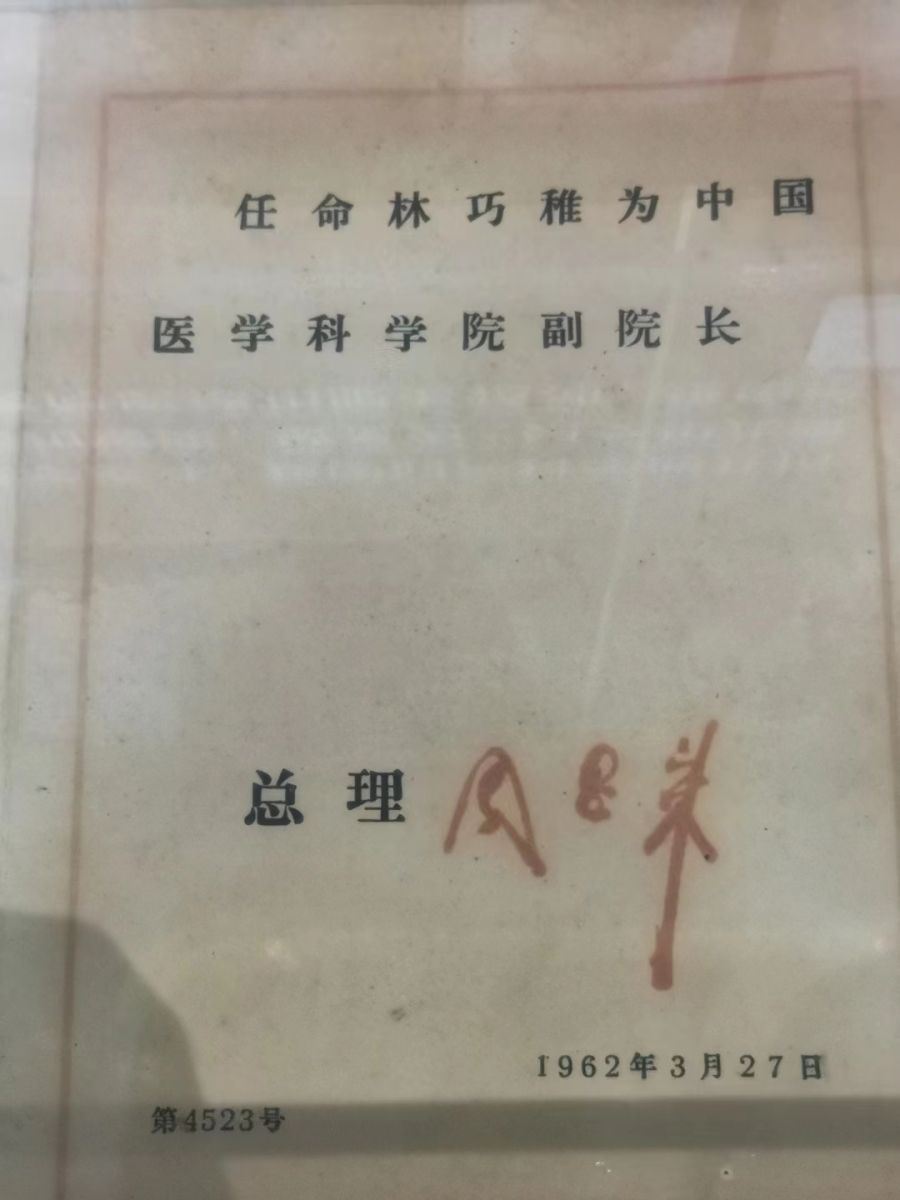 任命林巧稚为中国
医学科学院副院长
总理 周恩来
1962年3月27日
第4523号